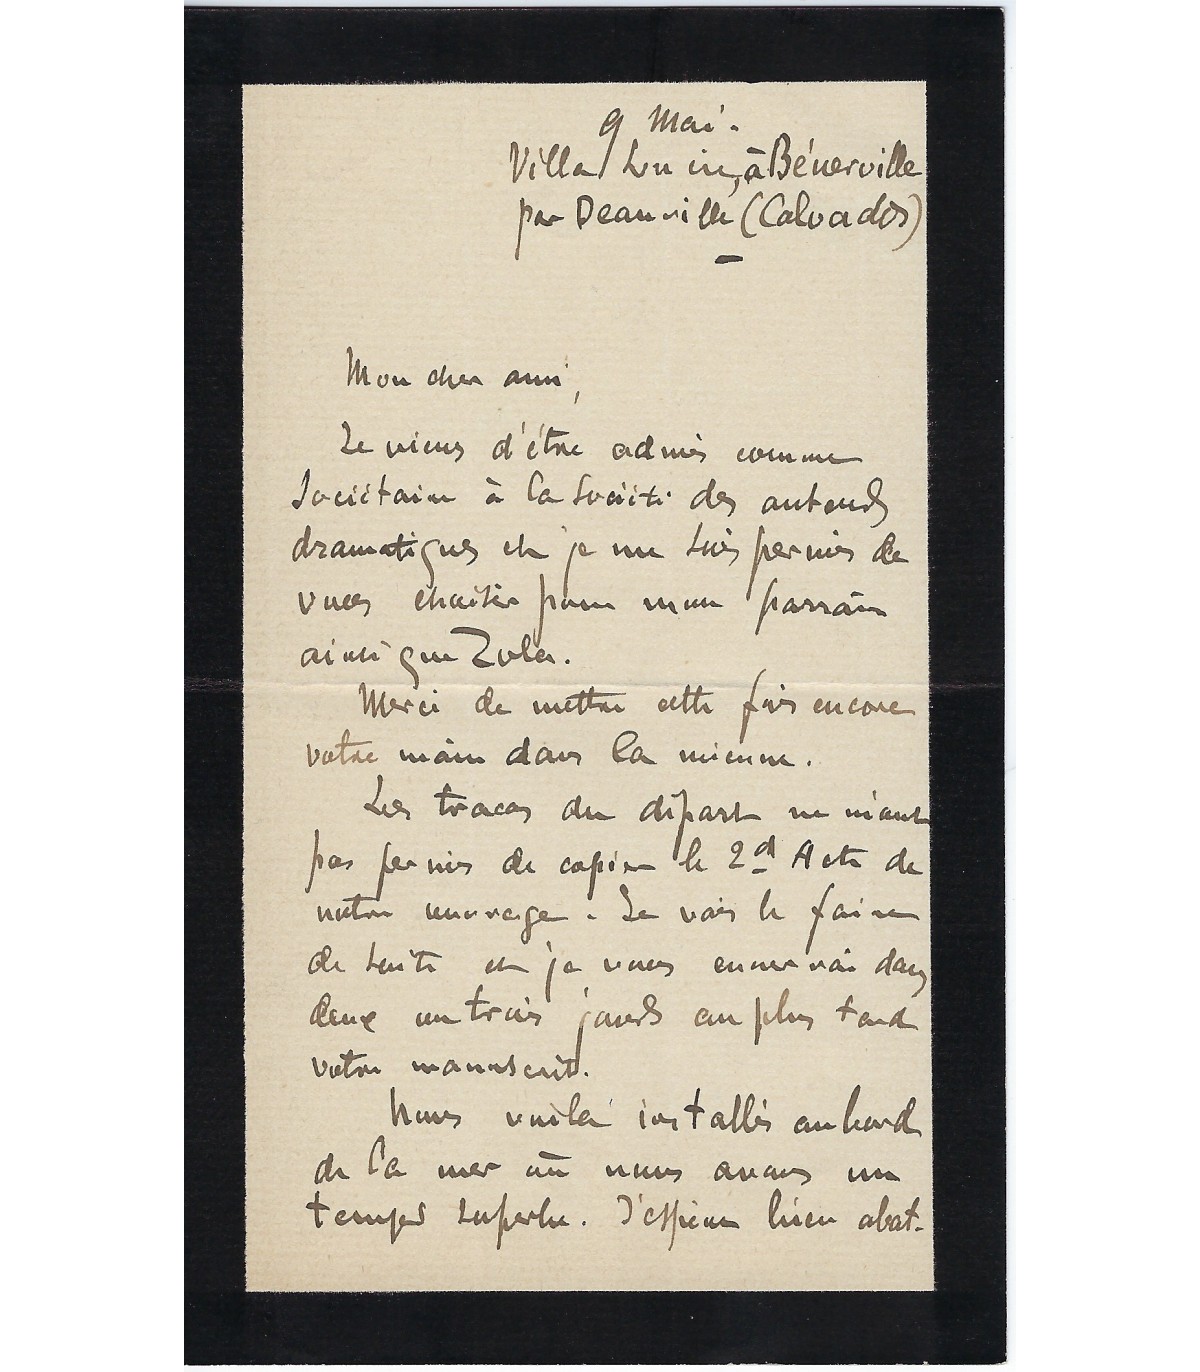 9 Mai.
Villa Lucie, à Bénerville
par Deauville (Calvados)
Mon cher ami,
Je viens d'être admis comme
Sociétaire à la Société des auteurs
dramatiques et je me suis permis de
vous choisir pour mon parrain
ainsi que Zola.
Merci de mettre cette fois encore
votre main dans la mienne.
Les tracas du départ ne m'ont
pas permis de copier le 2d Acte de
notre ouvrage. Je vais le faire
de suite et je vous enverrai dans
deux ou trois jours au plus tard
votre manuscrit.
Nous voilà installés au bord
de la mer où nous avons un
temps superbe. J'espère bien abat-